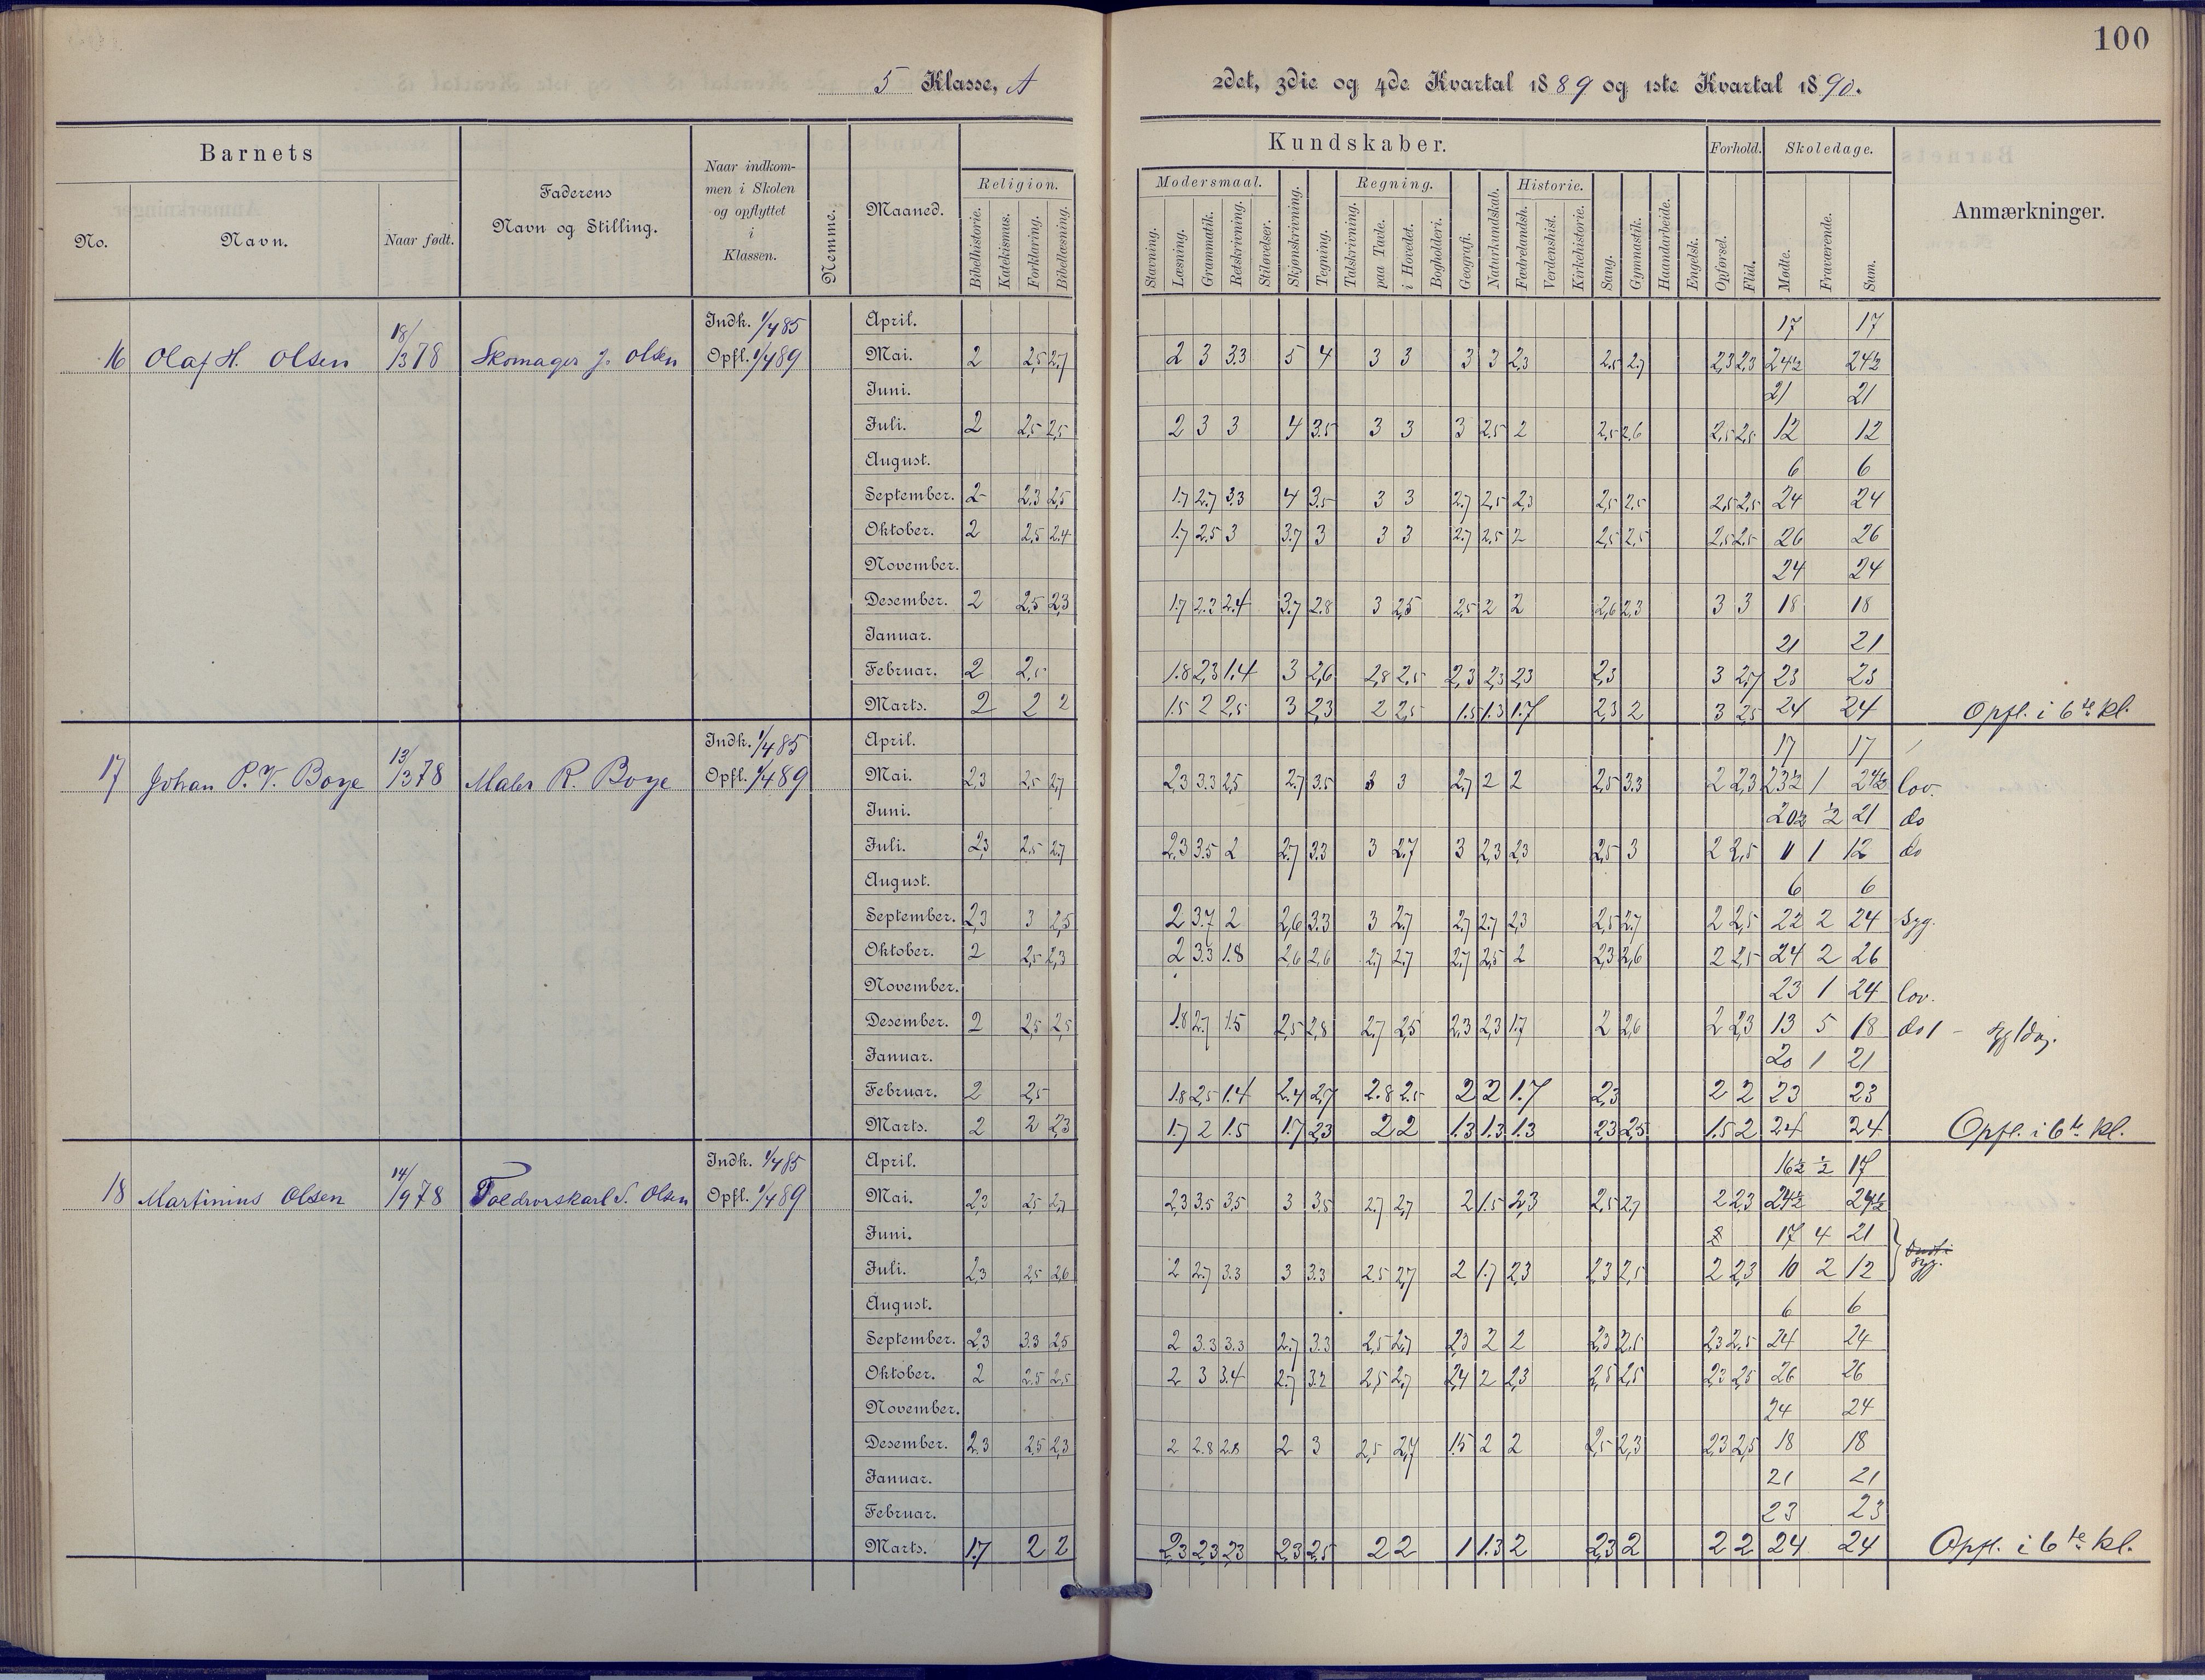 100
5 Klasse, A
2det, 3die og 4de Kvartal 1889 og 1ste Kvartal 1890.
Barnets
No. Navn. Naar født.
Faderens Navn og Stilling.
Naar indkommen i Skolen og opflyttet i Klassen.
Nemme.
Maaned.
Religion.
Bibelhistorie. Katekismus. Forklaring. Bibellæsning.
Kundskaber.
Modersmaal.
Stavning. Læsning. Grammatik. Retskrivning. Stiløvelser.
Skjønskrivning. Tegning.
Regning.
Talskrivning. paa Tavle. i Hovedet. Bogholderi.
Geografi. Naturkundskab.
Historie.
Fædrelandsh. Verdenshist. Kirkehistorie.
Sang. Gymnastik. Haandarbeide. Engelsk.
Forhold.
Opførsel. Flid.
Skoledage.
Mødte. Fraværende. Sum.
Anmærkninger.
16 Olaf H. Olsen 18/3 78 Skomager J. Olsen Indk. 1/4 85 Opfl. 1/4 89
April. 17 17
Mai. 2 2,5 2,7 2 3 3.3 5 4 3 3 3 3 2,3 2,5 2,7 2,3 2,3 24½ 24½
Juni. 21 21
Juli. 2 2,5 2,5 2 3 3 4 3.5 3 3 3 2,5 2 2,5 2,6 2,5 2,5 12 12
August. 6 6
September. 2 2,3 2,5 1.7 2.7 3.3 4 3.5 3 3 2.7 2,5 2,3 2,5 2,5 2,5 2,5 24 24
Oktober. 2 2,5 2.4 1.7 2.5 3 3.7 3 3 3 2.7 2,5 2 2,5 2,5 2,5 2,5 26 26
November. 24 24
Desember. 2 2,5 2,3 1.7 2.2 2.4 3.7 2.8 3 2,5 2,5 2 2 2,6 2,3 3 3 18 18
Januar. 21 21
Februar. 2 2,5 1.8 2,3 1.4 3 2,6 2,8 2,5 2,3 2,3 2,3 2,3 3 2,7 23 23
Marts. 2 2 2 1.5 2 2,5 3 2,3 2 2,5 1.5 1.3 1.7 2,3 2 3 2,5 24 24 Opfl. i 6te kl.
17 Johan P. V. Boye 13/3 78 Maler R. Boye Indk. 1/4 85 Opfl. 1/4 89
April. 17 17
Mai. 2,3 2,5 2,7 2,3 3.3 2,5 2.7 3.5 3 3 2,7 2 2 2,5 3.3 2 2,3 23½ 1 24½ lov.
Juni. 20½ ½ 21 do
Juli. 2,3 2,5 2,7 2,3 3.5 2 2.7 3.3 3 2.7 3 2,3 2,3 2,5 3 2 2,5 11 1 12 do
August. 6 6
September. 2,3 3 2,5 2 3.7 2 2,6 3.3 3 2.7 2,7 2,7 2,3 2,5 2,7 2 2,5 22 2 24 Syg.
Oktober. 2 2,5 2,3 2 3.3 1.8 2,6 2,6 2,7 2,7 2,7 2,5 2 2,3 2,6 2 2,5 24 2 26
November. 23 1 24 lov.
Desember. 2 2,5 2,5 1.8 2.7 1.5 2,5 2,8 2,7 2,5 2,3 2,3 1.7 2 2,6 2 2,3 13 5 18 do 1 - syg 1 dag.
Januar. 20 1 21
Februar. 2 2,5 1.8 2,5 1.4 2.4 2,7 2.8 2.5 2 2 1.7 2,3 2 2 23 23
Marts. 2 2 2,3 1.7 2 1.5 1.7 2,3 2 2 1.3 1.3 1.3 2,3 2,5 1.5 2 24 24 Opfl. i 6te kl.
18 Martinius Olsen 14/9 78 Indk. 1/4 85 Opfl. 1/4 89
April. 16½ ½ 17
Mai. 2,3 2,5 2,7 2,3 3.5 3,5 3 3,5 2,7 2,7 2 1.5 2,3 2,5 2,7 2 2,3 24½ 24½
Juni. 17 4 21
Juli. 2,3 2,5 2,6 2 2.7 3.3 3 3.3 2.5 2,7 2 1.7 2,3 2,3 2,5 2 2,3 10 2 12 Syg.
August. 6 6
September. 2,3 3.3 2,5 2 3.3 3.3 2.7 3.3 2,5 2,7 2,3 2 2 2,3 2,5 2,3 2,5 24 24
Oktober. 2 2.5 2,5 2 3 3.4 2.7 3.2 2,5 2,7 2,4 2 2,3 2,5 2,5 2,3 2,5 26 26
November. 24 24
Desember. 2.3 2,5 2,3 2 2.8 2.8 2 3 2,5 2,7 1.5 2 2 2,5 2,3 2,3 2,5 18 18
Januar. 21 21
Februar. 23 23
Marts. 1.7 2 2 2,3 2,3 2,3 2,3 2,5 2 2 1 1.3 2 2,3 2 2 2 24 24 Opfl. i 6te kl.